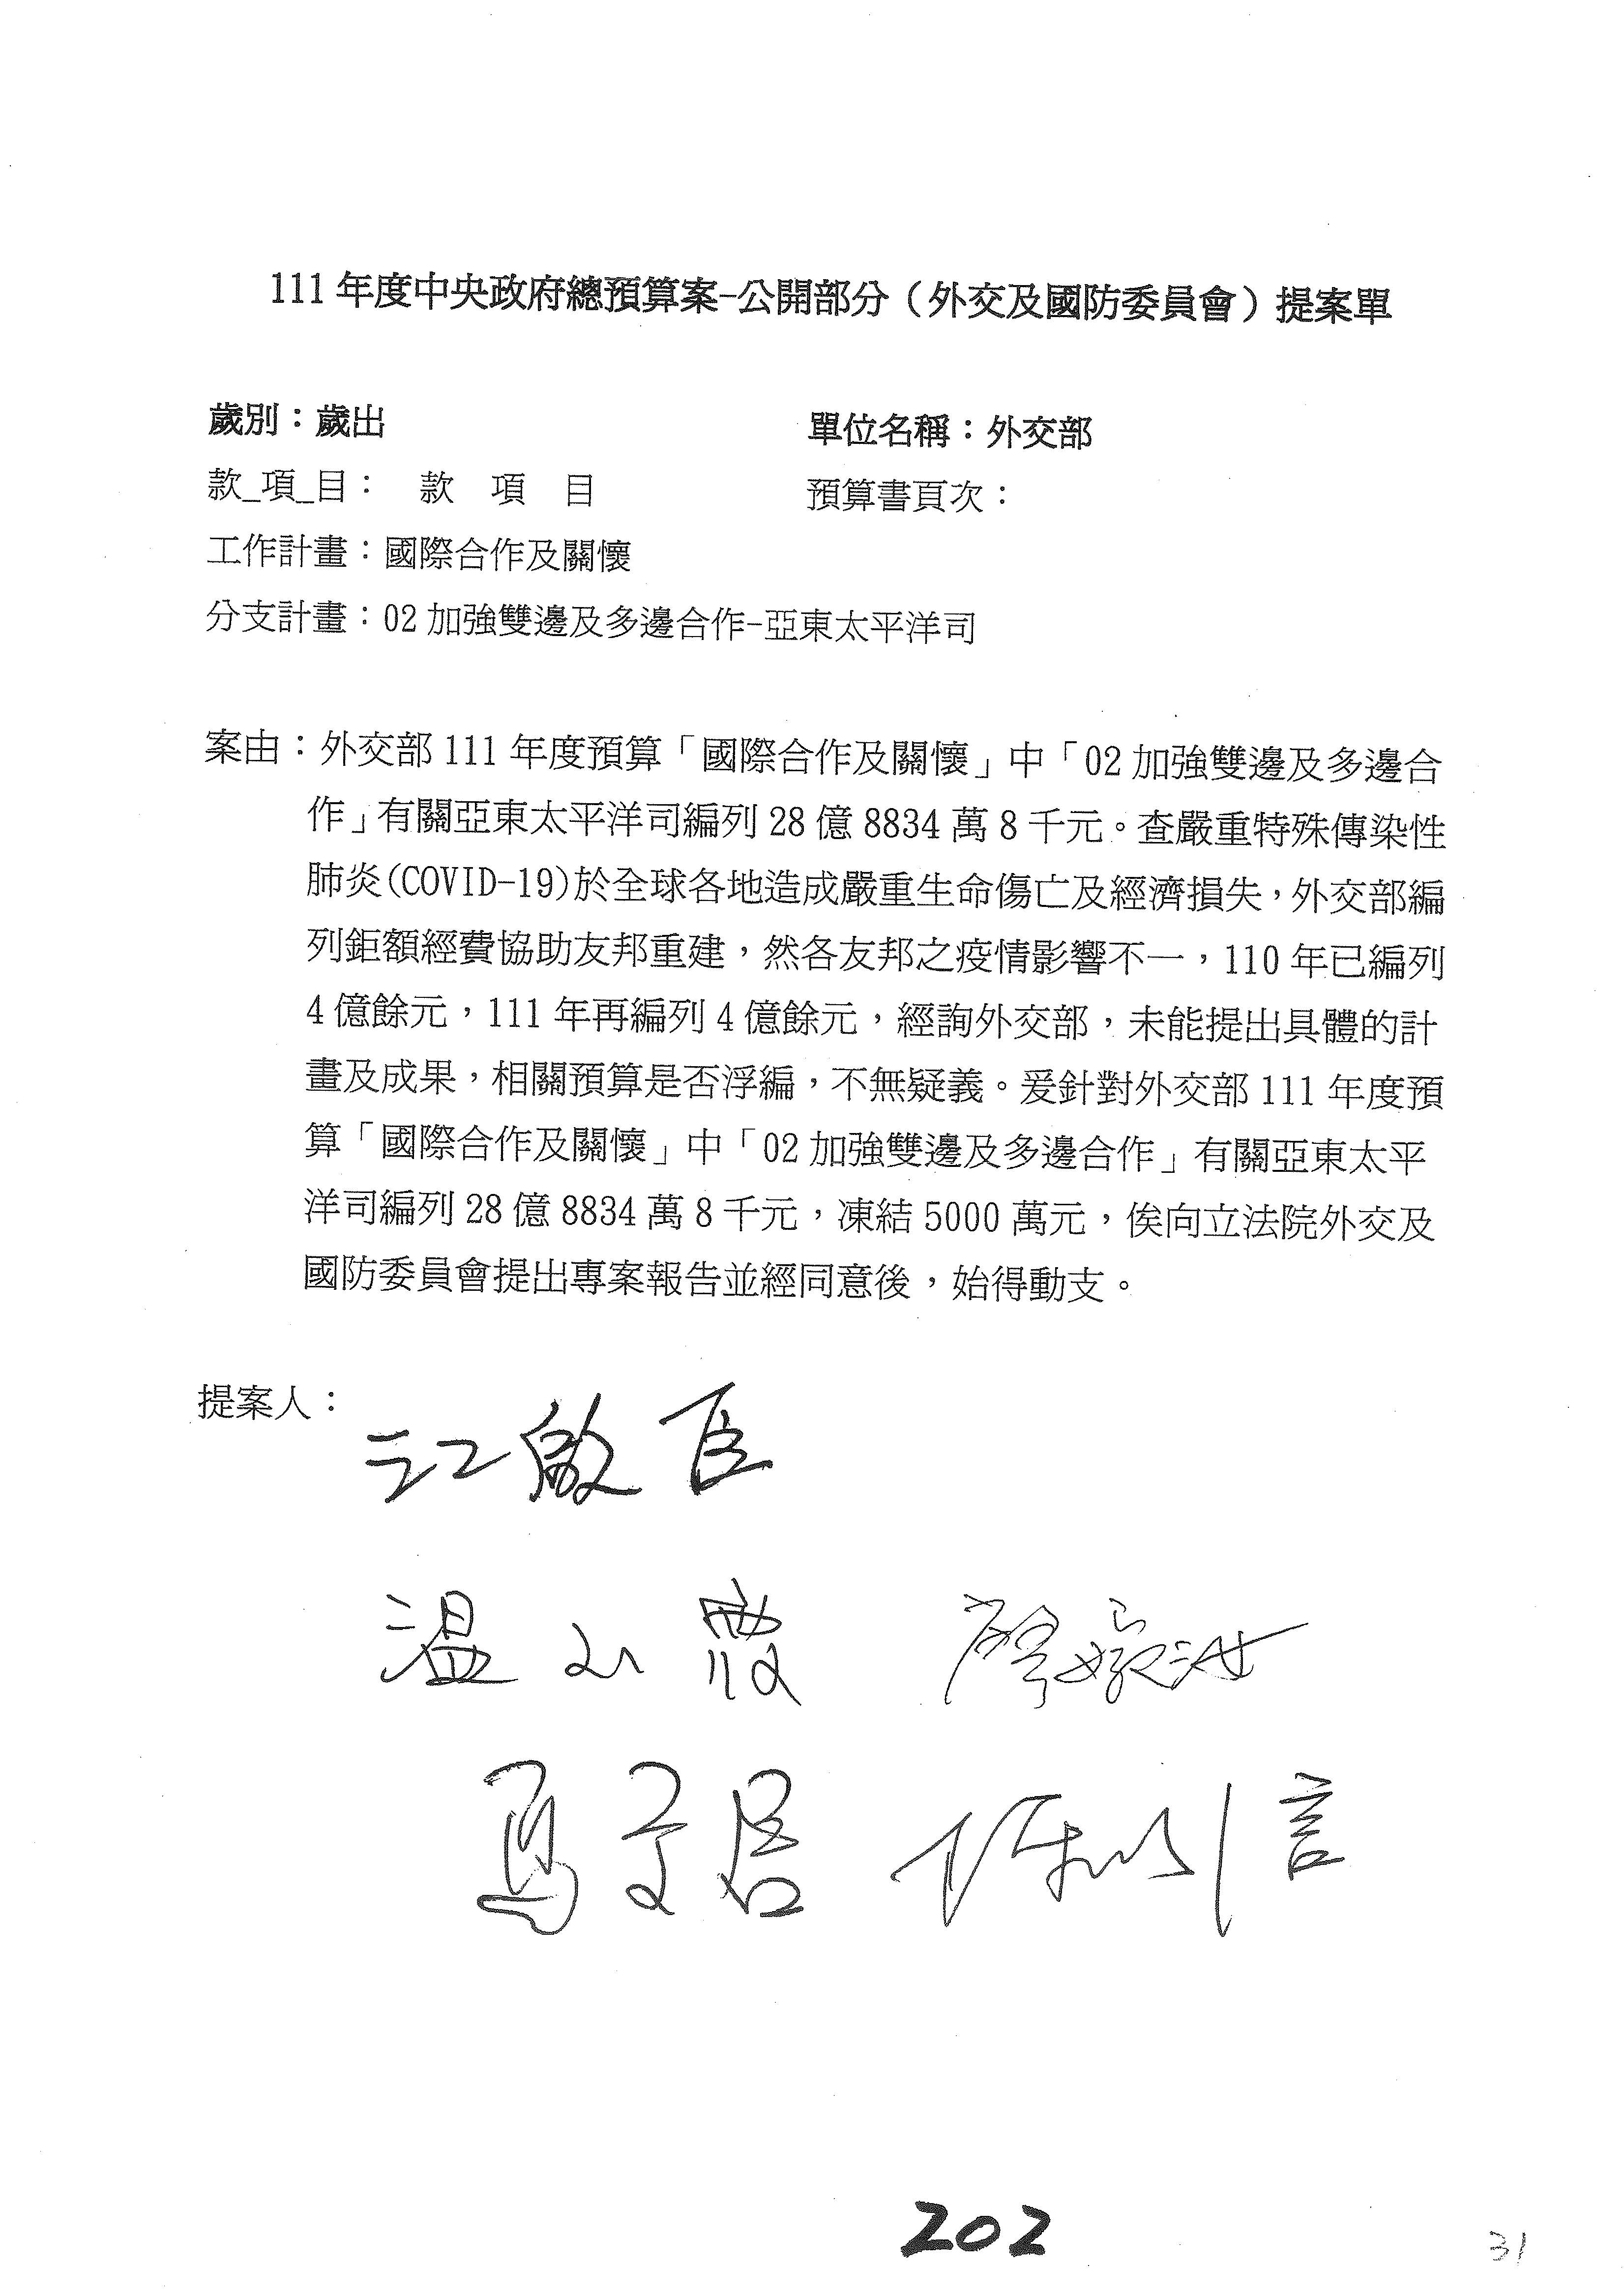 111年度中央政府總預算案-公開部分（外交及國防委員會）提案單
歲別：歲出 單位名稱：外交部
款_項_目： 款 項 目 預算書頁次：
工作計畫：國際合作及關懷
分支計畫：02加強雙邊及多邊合作-亞東太平洋司
案由：外交部111年度預算「國際合作及關懷」中「02加強雙邊及多邊合
作」有關亞東太平洋司編列28億8834萬8千元。查嚴重特殊傳染性
肺炎(COVID-19)於全球各地造成嚴重生命傷亡及經濟損失，外交部編
列鉅額經費協助友邦重建，然各友邦之疫情影響不一，110年已編列
4億餘元，111年再編列4億餘元，經詢外交部，未能提出具體的計
畫及成果，相關預算是否浮編，不無疑義。爰針對外交部111年度預
算「國際合作及關懷」中「02加強雙邊及多邊合作」有關亞東太平
洋司編列28億8834萬8千元，凍結5000萬元，俟向立法院外交及
國防委員會提出專案報告並經同意後，始得動支。
提案人：
江啟臣
温玉霞
馬文君
202
31